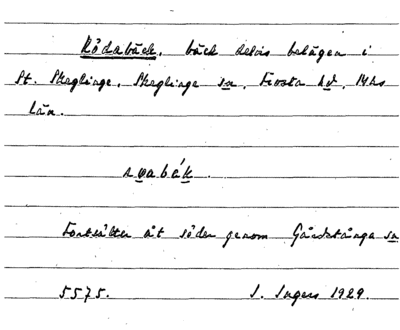 Rödabäck, bäck delvis belägen i
St. Skeglinge, Skeglinge sn, Frosta hd, Mhs
län.
Fortsätter åt söder genom Gårdstånga sn
5575. I. Ingers 1929.